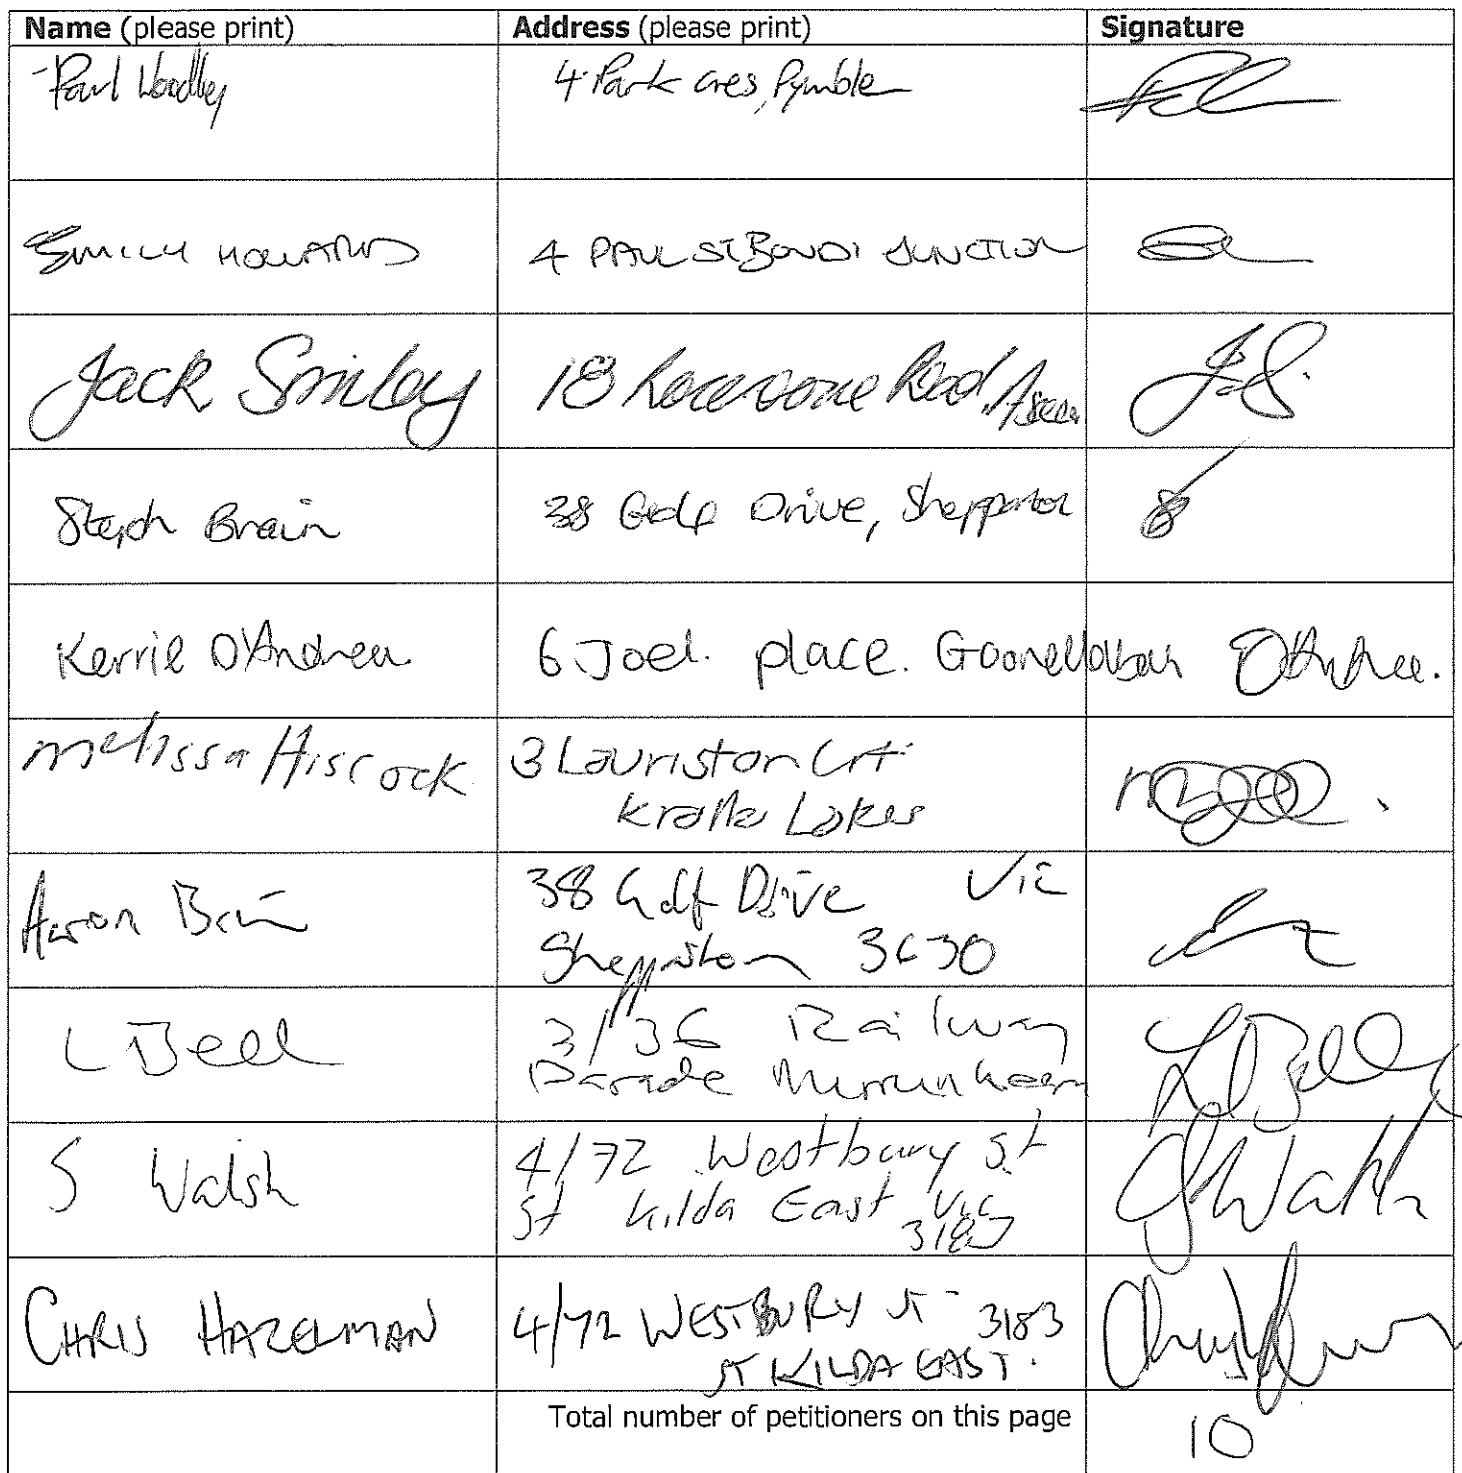 Name (please print) Address (please print) Signature
Paul Woodley 4 Park Cres, Pymble
EMILY HOWARD 4 PAUL ST BONDI JUNCTION
Jack Smiley 18 Road,
Steph Brain 38 Golf Drive, Shepparton
Kerrie D'Andrea 6 Joel place. Goonellabah
Melissa Hiscock 3 Lauriston Crt.
Lakes
Aaron Brain 38 Golf Drive Vic
Shepparton 3630
L Bell 3/36 Railway
Parade Murrumbeena
S Walsh 4/72 Westbury St S Walsh
St Kilda East Vic
3183
CHRIS HAZELMAN 4/72 WESTBURY ST 3183
ST KILDA EAST.
Total number of petitioners on this page 10